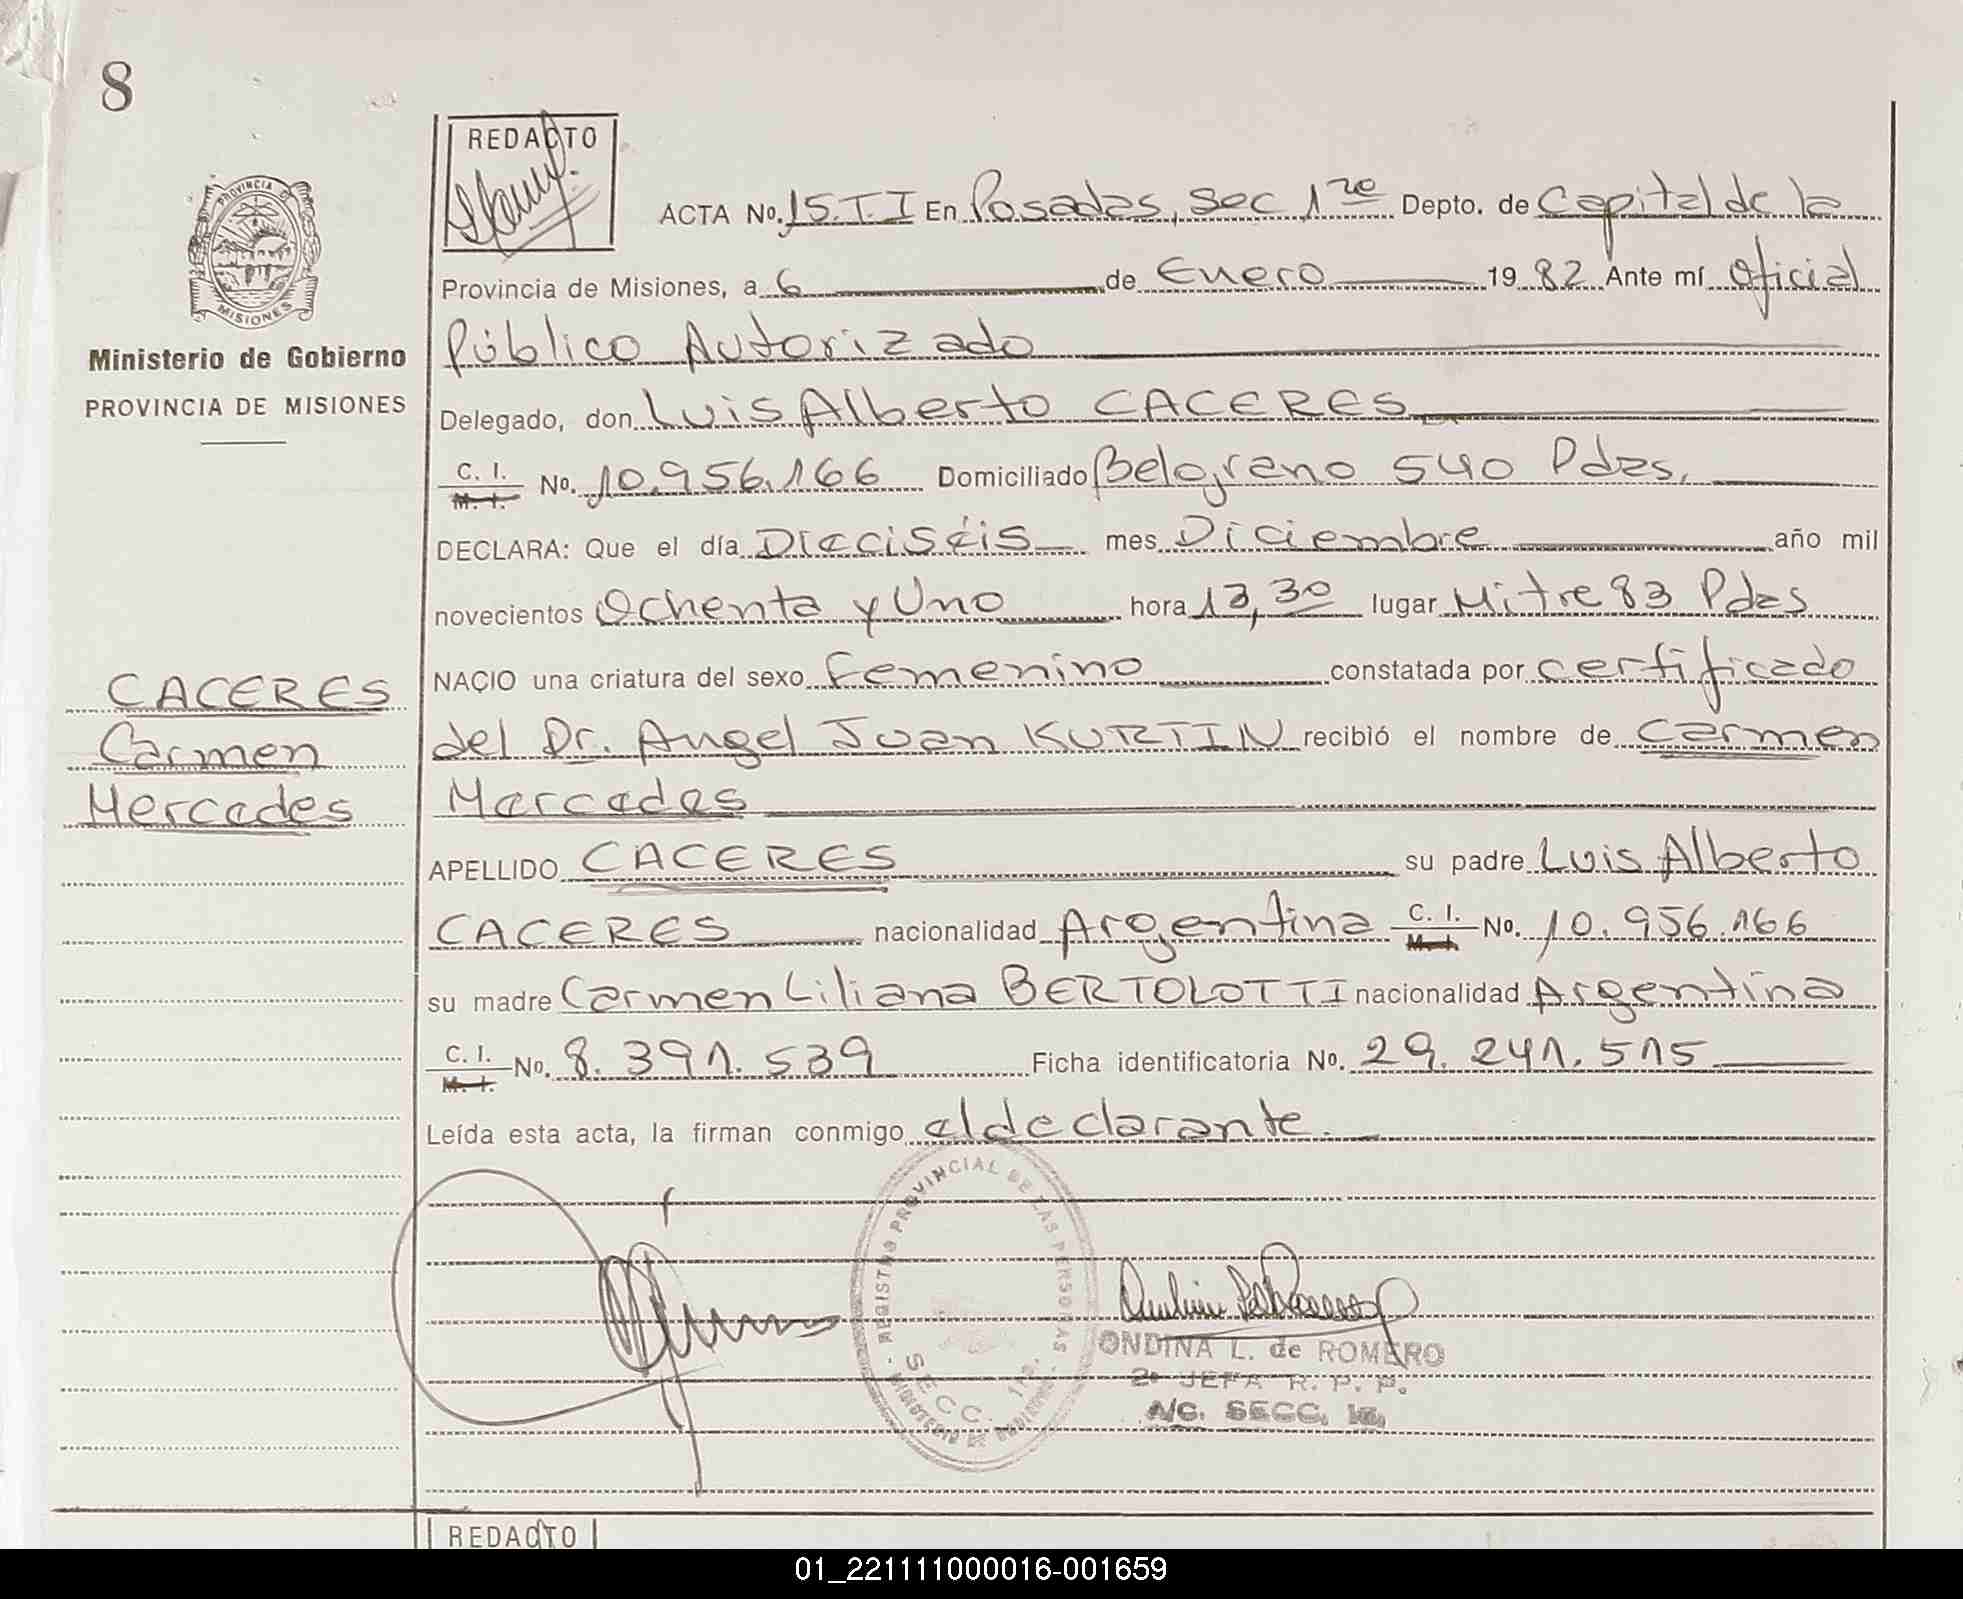 8
REDACTO
PROVINCIA D
MISIONES
Ministerio de Gobierno
PROVINCIA DE MISIONES
ACTA No. 15.T.I En Posadas, Sec 1ra Depto. de Capital de la
Provincia de Misiones, a 6 de Enero 1982 Ante mí Oficial
Público Autorizado
Delegado, don Luis Alberto CACERES
C. I. M. I. No. 10.956.166 Domiciliado Belgrano 540 Pdas,
DECLARA: Que el día Dieciséis mes Diciembre año mil
novecientos Ochenta y Uno hora 13,30 lugar Mitre 83 Pdas
CACERES
Carmen
Mercedes
NACIO una criatura del sexo Femenino constatada por certificado
del Dr. Angel Juan KURTIN recibió el nombre de Carmen
Mercedes
APELLIDO CACERES su padre Luis Alberto
CACERES nacionalidad Argentina C. I. M. I. No. 10.956.166
su madre Carmen Liliana BERTOLOTTI nacionalidad Argentina
C. I. M. I. No. 8.391.539 Ficha identificatoria No. 29.241.515
Leída esta acta, la firman conmigo el declarante.
REGISTRO PROVINCIAL DE LAS PERSONAS
SECC. 1ra.
MINISTERIO DE GOBIERNO
ONDINA L. de ROMERO
2a JEFA R. P. P.
A/C. SECC. 1a.
REDACTO
01_221111000016-001659